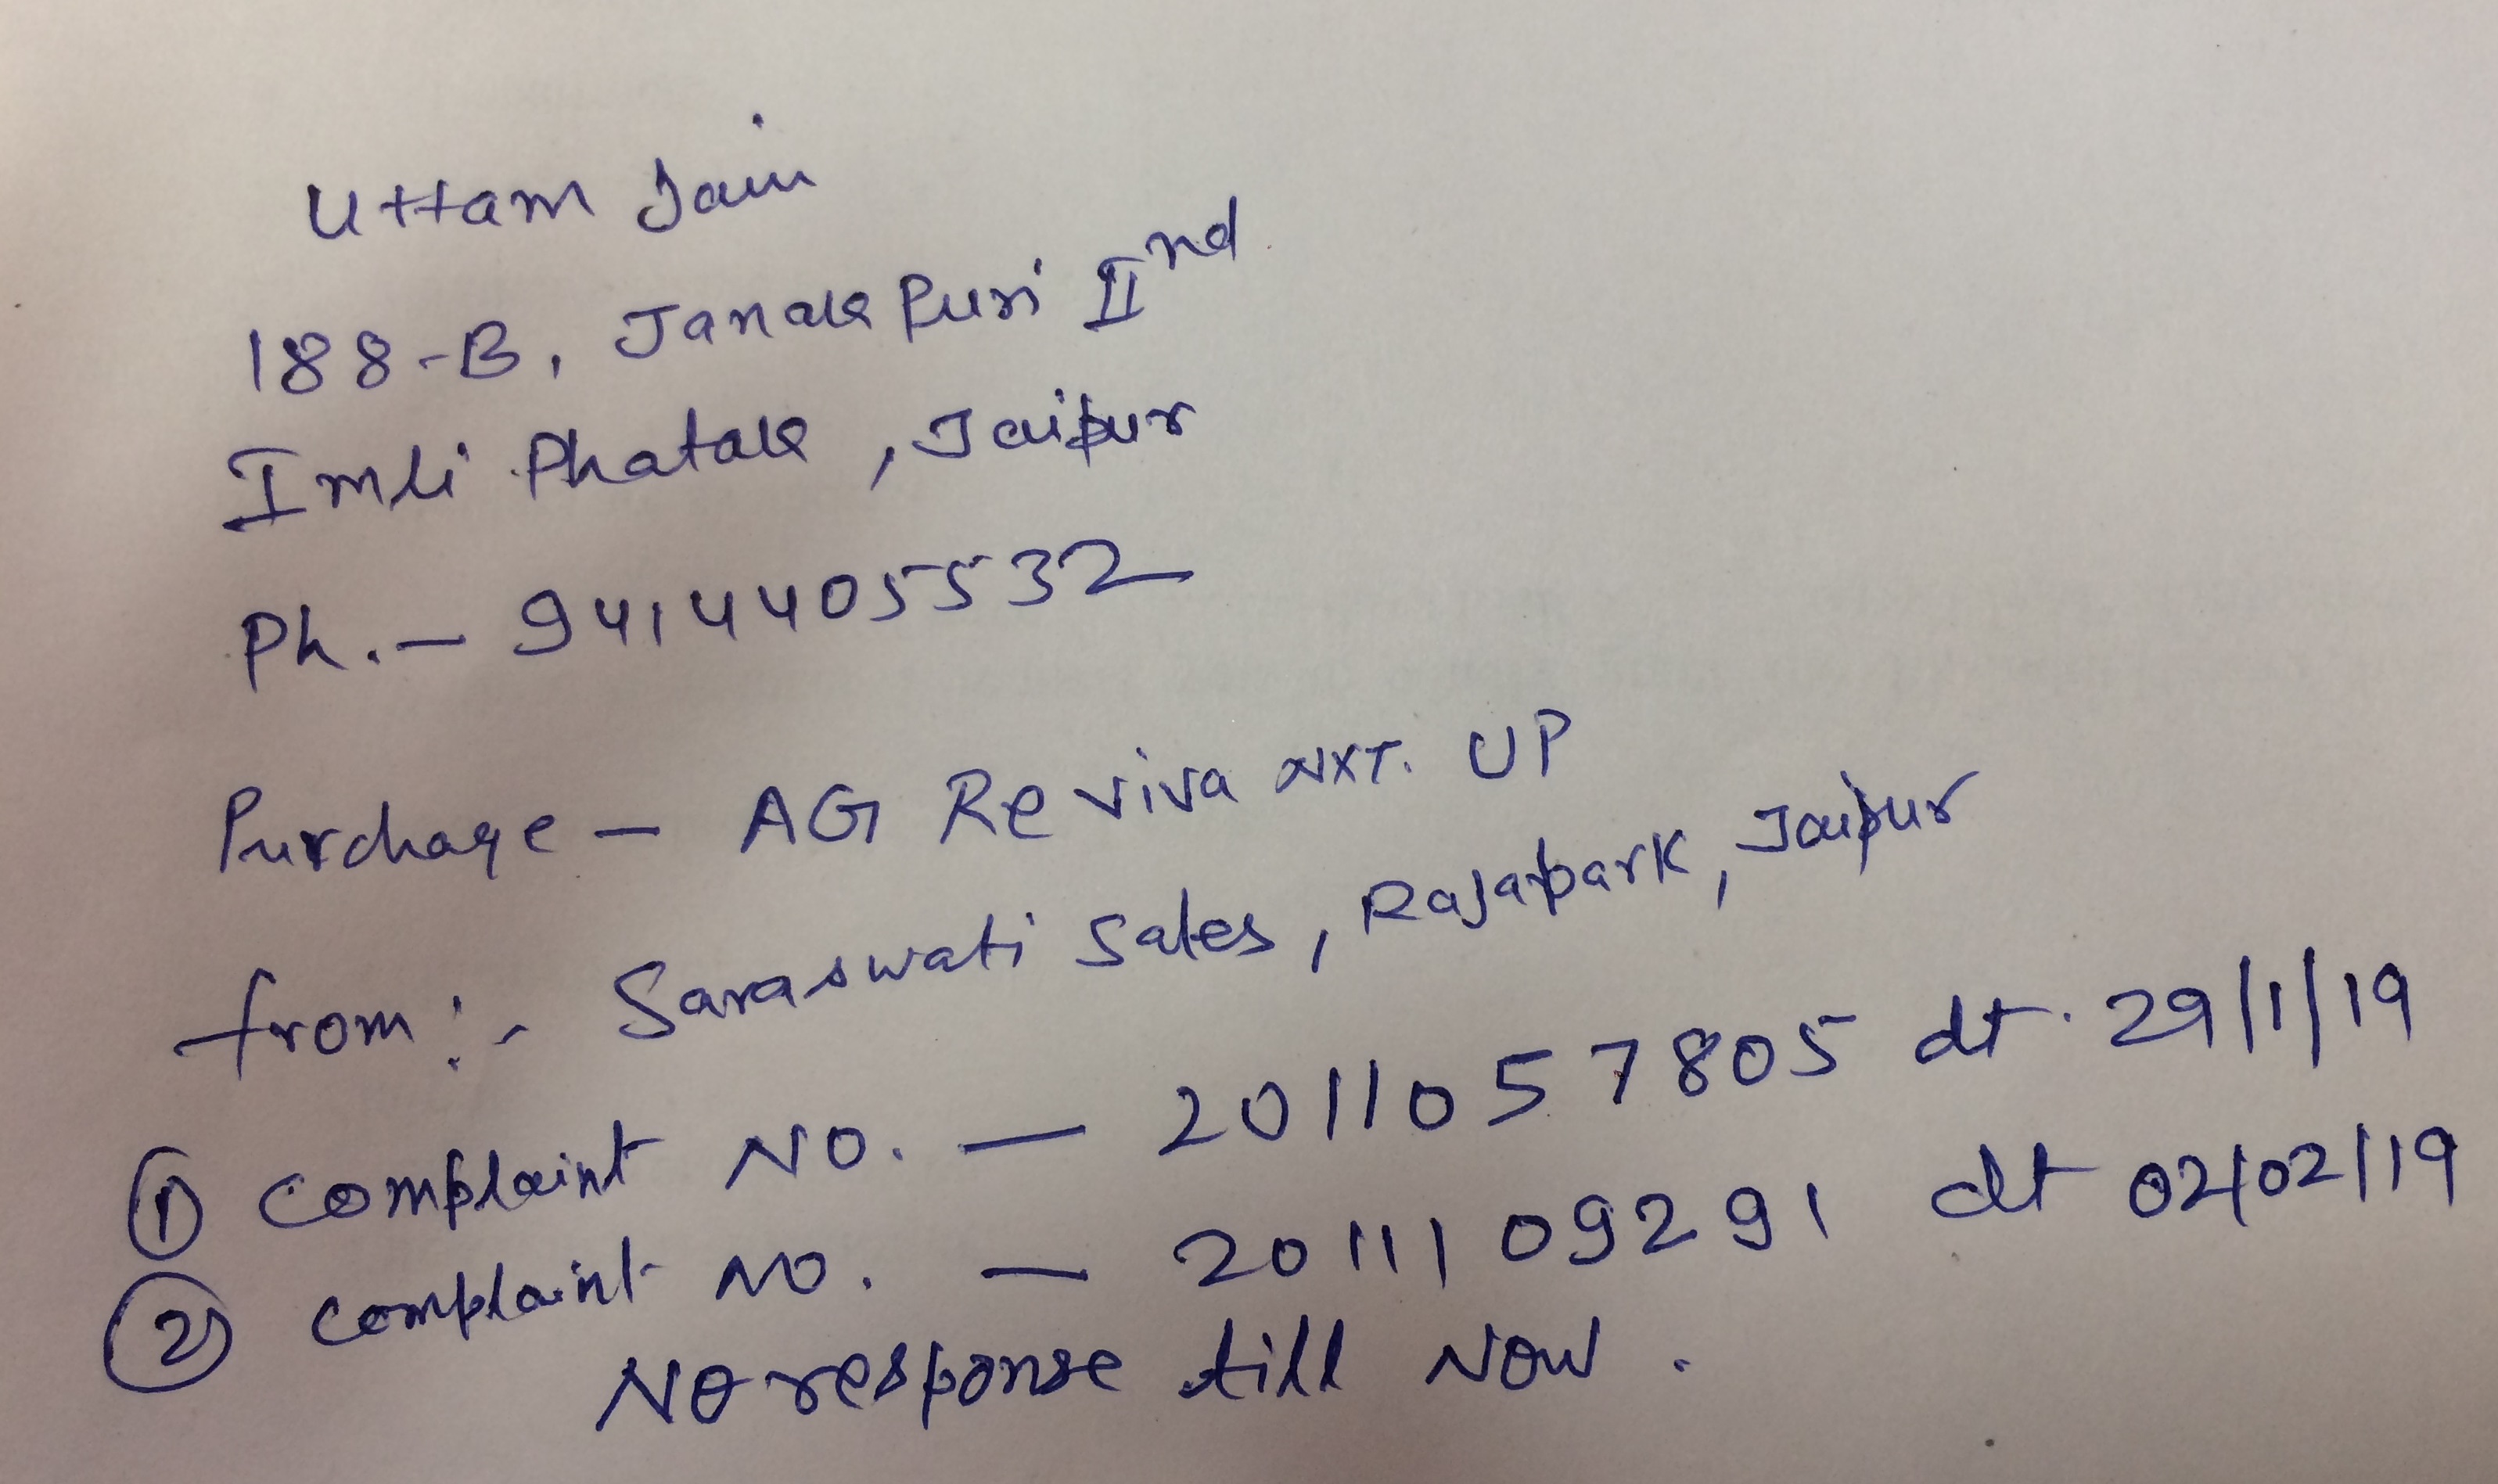 Uttam Jain
188-B, Janak Puri IInd
Imli Phatak, Jaipur
Ph. - 9414405532
Purchage - AG Reviva NXT. UP
from :- Saraswati Sales, Rajapark, Jaipur
① Complaint NO. - 2011057805 dt. 29/1/19
② Complaint NO. - 2011109291 dt 02/02/19
NO response till NOW.